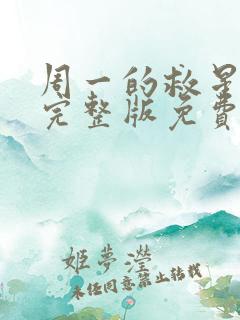 周一的救星
完整版免费
姬夢瀅
未经同意禁止转载